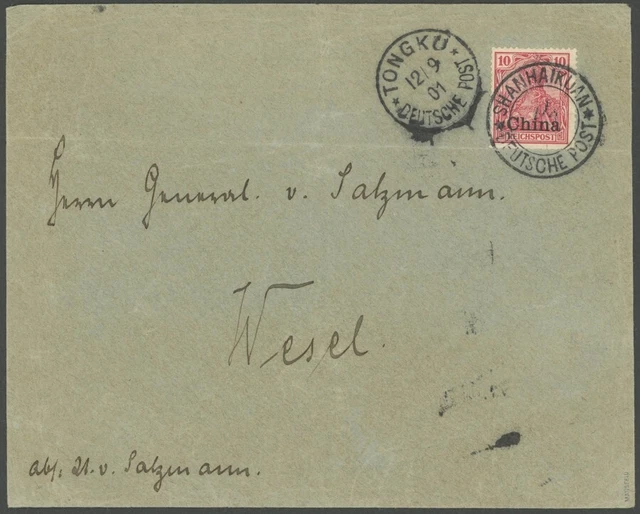 TONGKU
12/9
01
DEUTSCHE POST
10 10
SHANHAIKUAN
China
REICHSPOST
DEUTSCHE POST
Herrn General. v. Salzmann.
Wesel.
v. Salzmann.